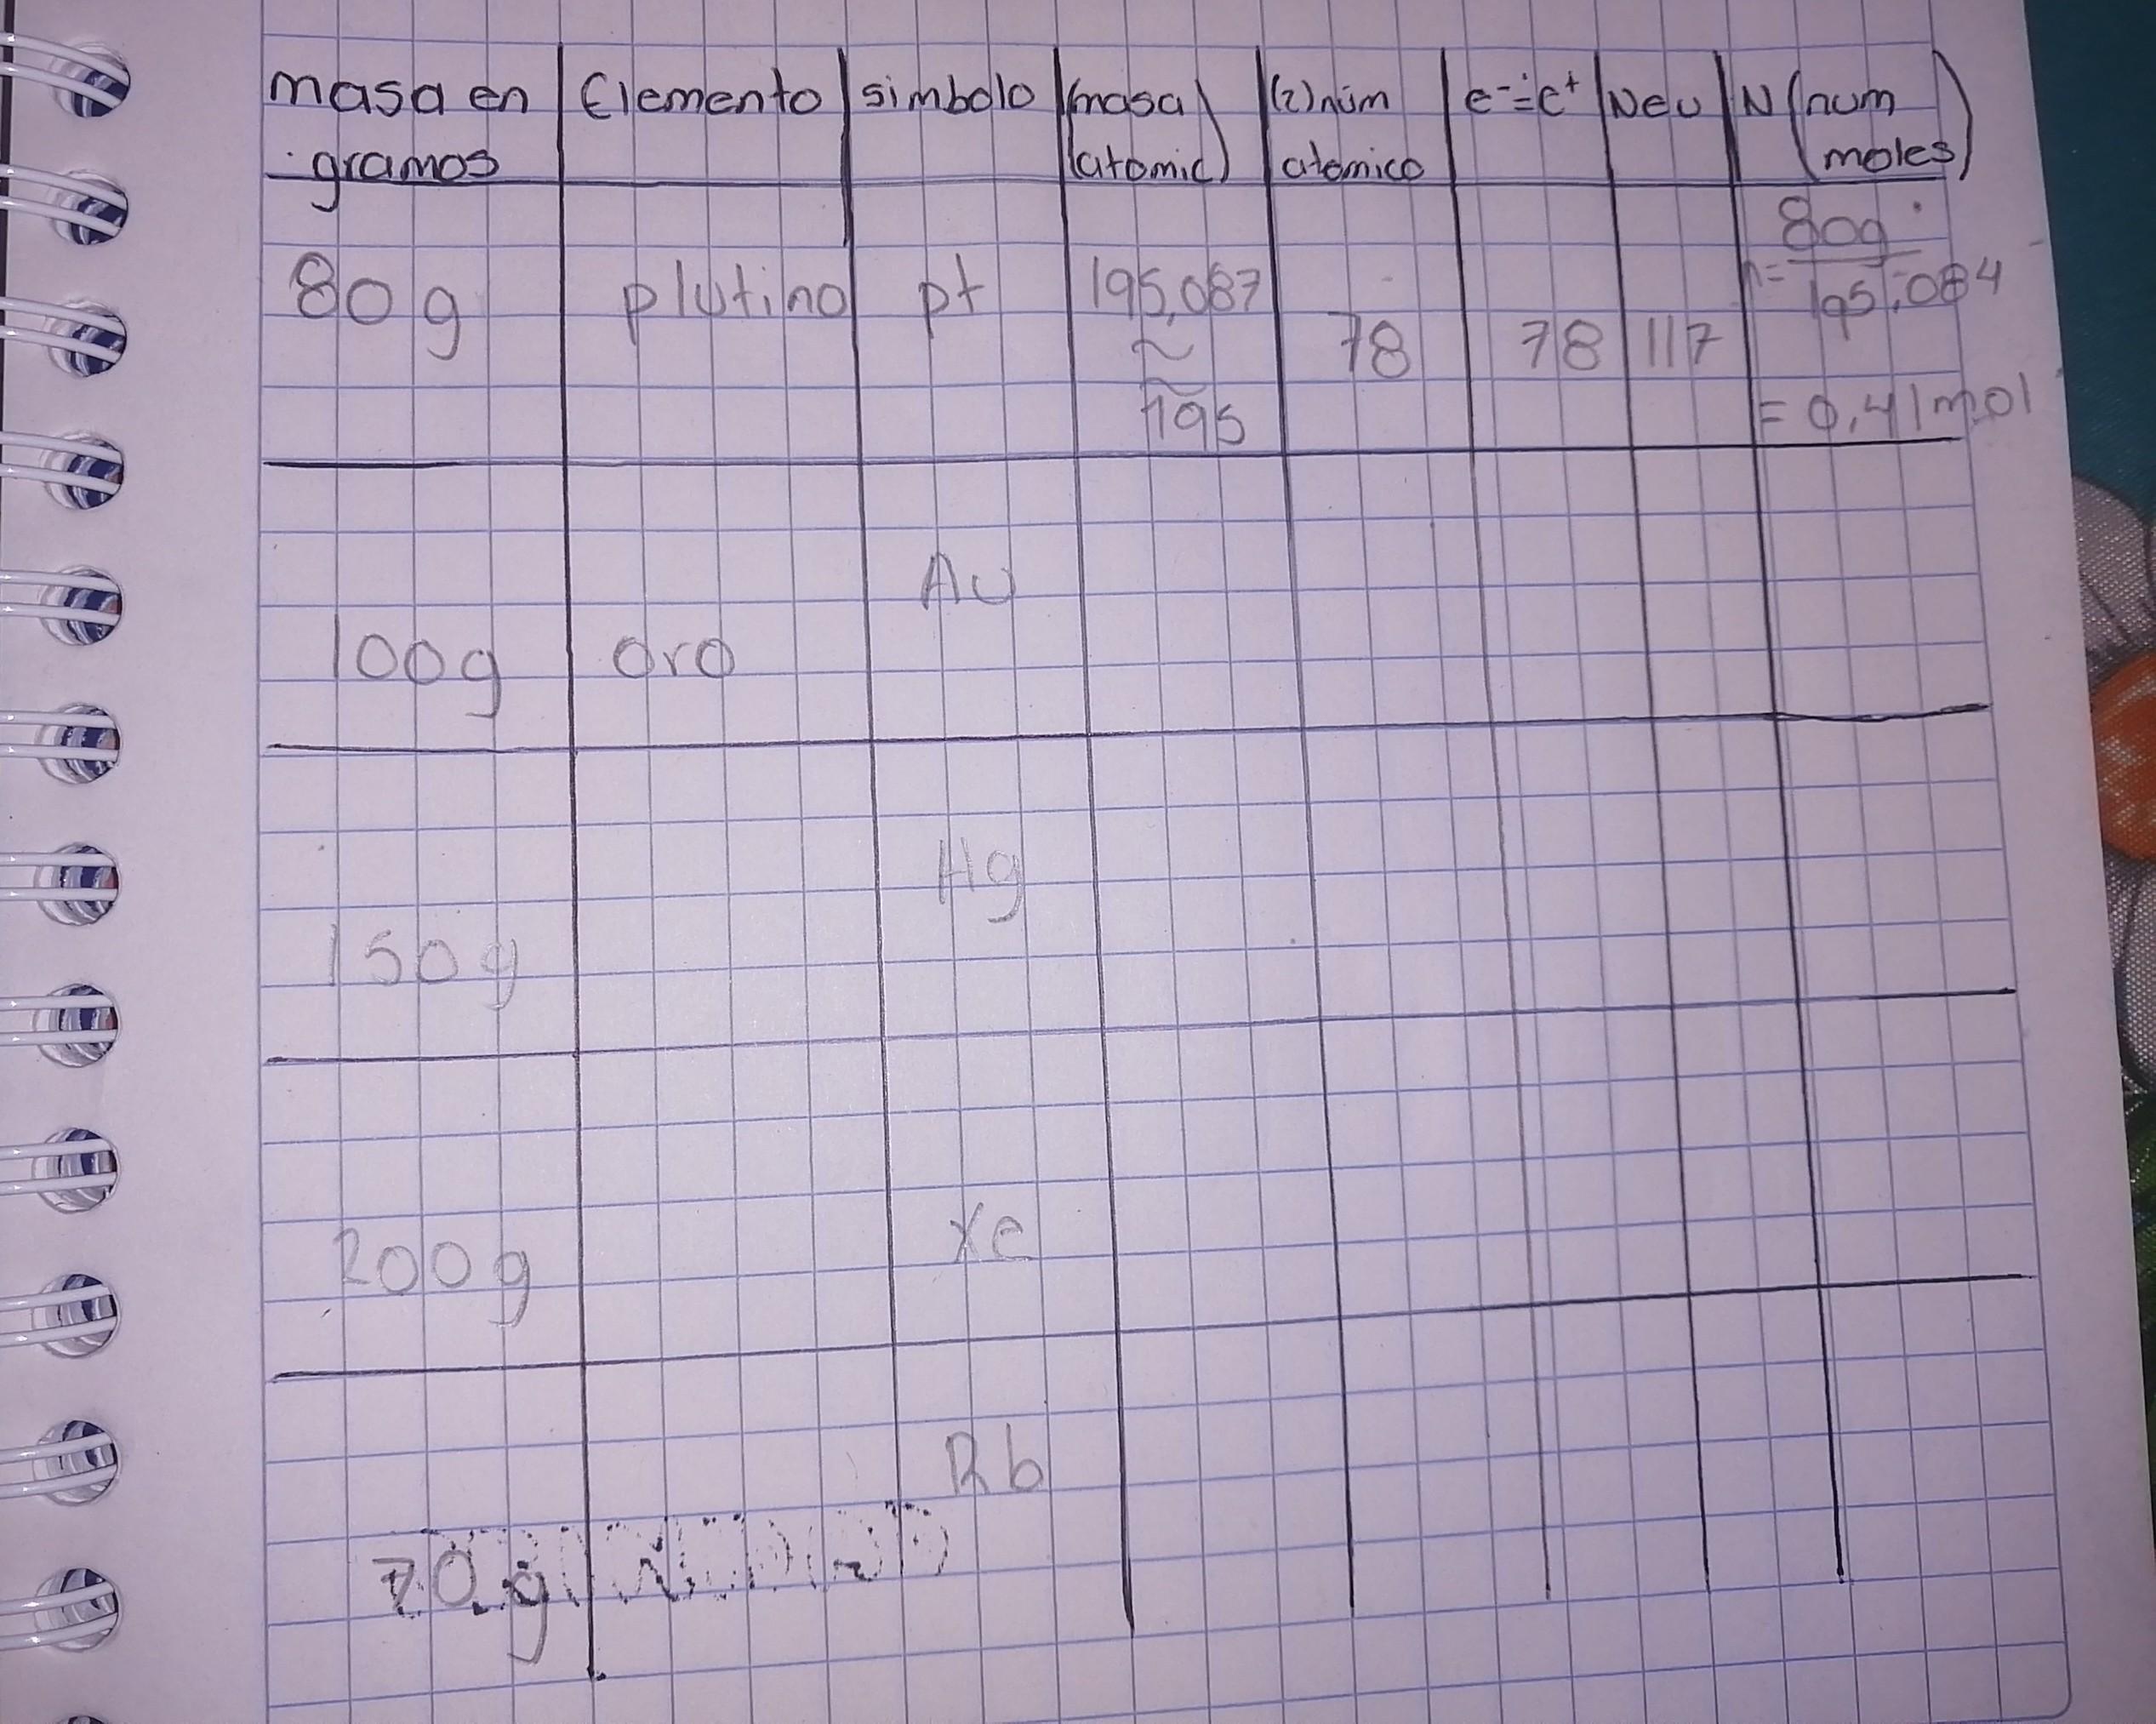 masa en | Elemento | simbolo | (masa | (z) núm | e⁻=e⁺ | Neu | N (num
gramos | atomic) | atomico | moles)
80g
80g | plutino | pt | 195,087 | n= 195,084
≈ | 78 | 78 | 117
195 | = 0,41mol
Au
100g | oro
Hg
150g
Xe
200g
Rb
70g